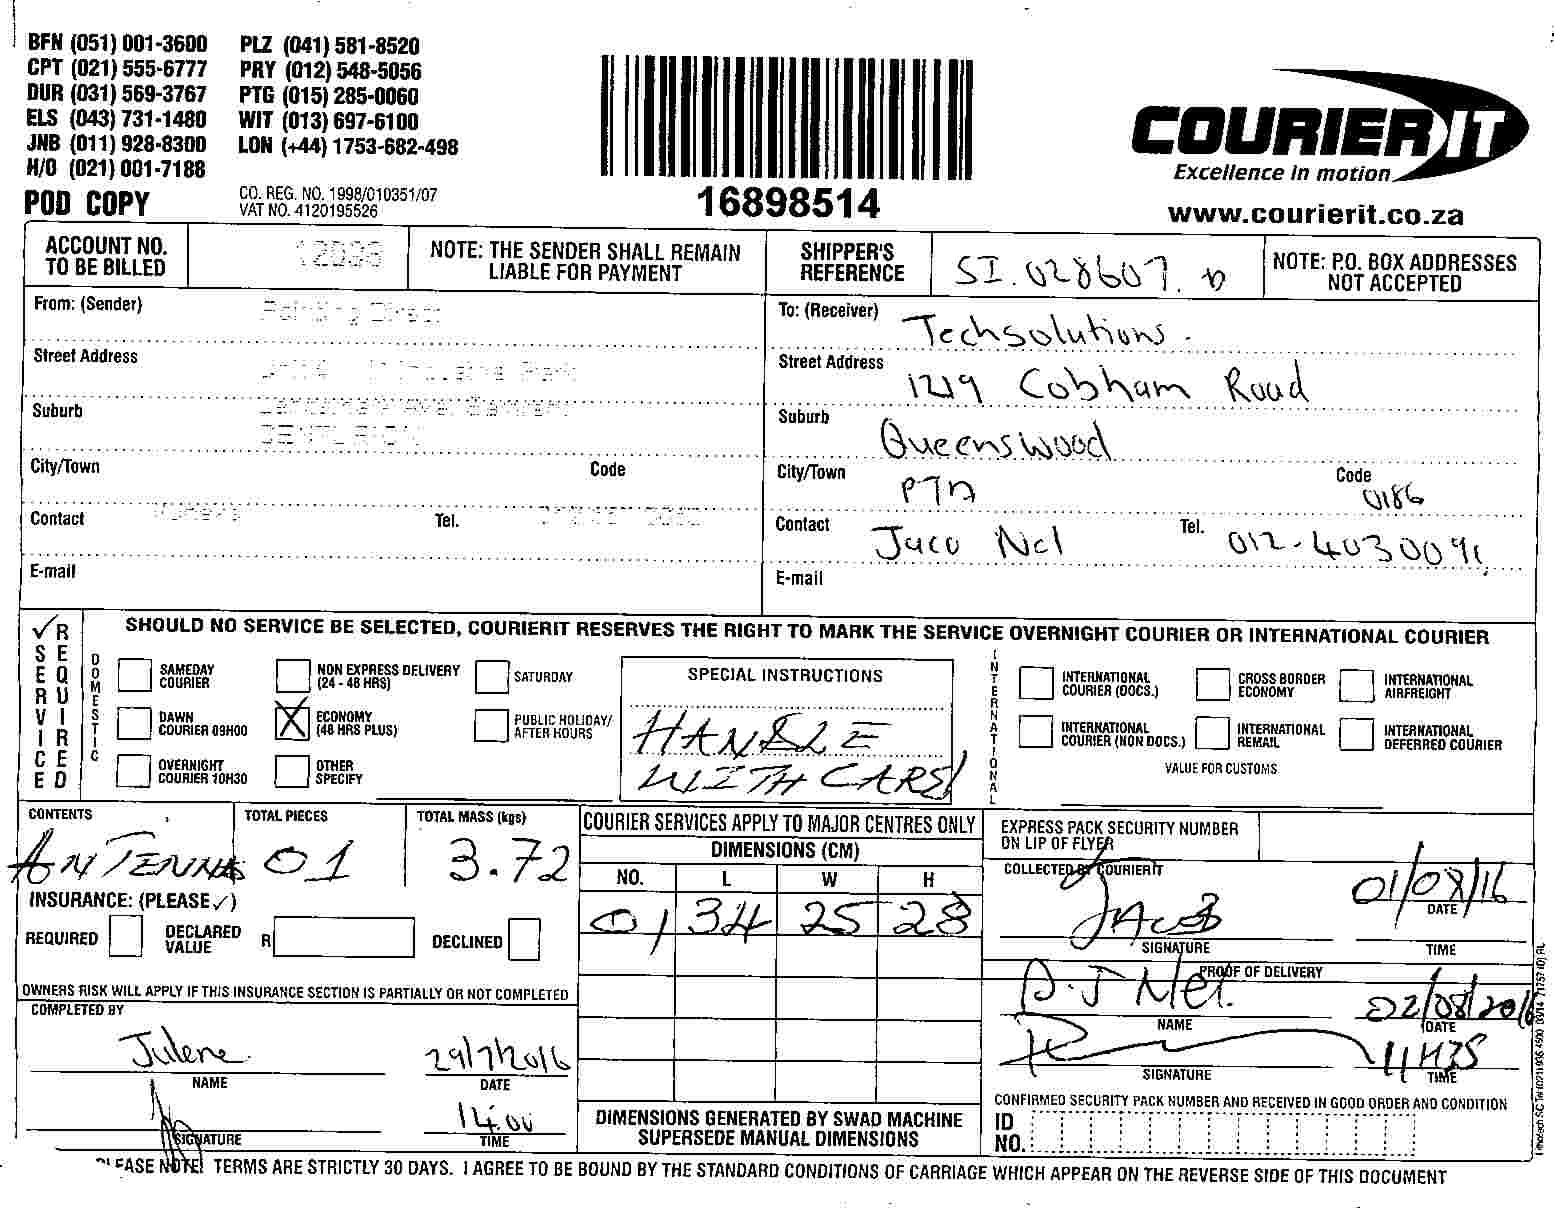 BFN (051) 001-3600 PLZ (041) 581-8520
CPT (021) 555-6777 PRY (012) 548-5056
DUR (031) 569-3767 PTG (015) 285-0060
ELS (043) 731-1480 WIT (013) 697-6100
JNB (011) 928-8300 LON (+44) 1753-682-498
H/O (021) 001-7188
POD COPY
CO. REG. NO. 1998/010351/07
VAT NO. 4120195526
16898514
COURIER IT
Excellence in motion
www.courierit.co.za
ACCOUNT NO.
TO BE BILLED
NOTE: THE SENDER SHALL REMAIN
LIABLE FOR PAYMENT
SHIPPER'S
REFERENCE
SI.028607.
NOTE: P.O. BOX ADDRESSES
NOT ACCEPTED
From: (Sender)
Street Address
Suburb
CENTURION
City/Town Code
Contact Tel.
E-mail
To: (Receiver) Techsolutions.
Street Address 1219 Cobham Road
Suburb Queenswood
City/Town PTA Code 0186
Contact Jaco Nel Tel. 012-4030091
E-mail
✓ SERVICE REQUIRED
SHOULD NO SERVICE BE SELECTED, COURIERIT RESERVES THE RIGHT TO MARK THE SERVICE OVERNIGHT COURIER OR INTERNATIONAL COURIER
DOMESTIC
SAMEDAY
COURIER
NON EXPRESS DELIVERY
(24 - 48 HRS)
SATURDAY
DAWN
COURIER 09H00
X ECONOMY
(48 HRS PLUS)
PUBLIC HOLIDAY/
AFTER HOURS
OVERNIGHT
COURIER 10H30
OTHER
SPECIFY
SPECIAL INSTRUCTIONS
HANDLE
WITH CARE!
INTERNATIONAL
INTERNATIONAL
COURIER (DOCS.)
CROSS BORDER
ECONOMY
INTERNATIONAL
AIRFREIGHT
INTERNATIONAL
COURIER (NON DOCS.)
INTERNATIONAL
REMAIL
INTERNATIONAL
DEFERRED COURIER
VALUE FOR CUSTOMS
CONTENTS TOTAL PIECES TOTAL MASS (kgs)
ANTENNA 01 3.72
INSURANCE: (PLEASE ✓)
REQUIRED DECLARED
VALUE R DECLINED
OWNERS RISK WILL APPLY IF THIS INSURANCE SECTION IS PARTIALLY OR NOT COMPLETED
COMPLETED BY
Julene 29/7/2016
NAME DATE
14:00
SIGNATURE TIME
COURIER SERVICES APPLY TO MAJOR CENTRES ONLY
DIMENSIONS (CM)
NO. L W H
01 34 25 28
DIMENSIONS GENERATED BY SWAD MACHINE
SUPERSEDE MANUAL DIMENSIONS
EXPRESS PACK SECURITY NUMBER
ON LIP OF FLYER
COLLECTED BY COURIERIT
JACOB 01/08/16
DATE
SIGNATURE TIME
PROOF OF DELIVERY
D.J Nel. 02/08/2016
NAME DATE
11H35
SIGNATURE TIME
CONFIRMED SECURITY PACK NUMBER AND RECEIVED IN GOOD ORDER AND CONDITION
ID
NO.
PLEASE NOTE! TERMS ARE STRICTLY 30 DAYS. I AGREE TO BE BOUND BY THE STANDARD CONDITIONS OF CARRIAGE WHICH APPEAR ON THE REVERSE SIDE OF THIS DOCUMENT